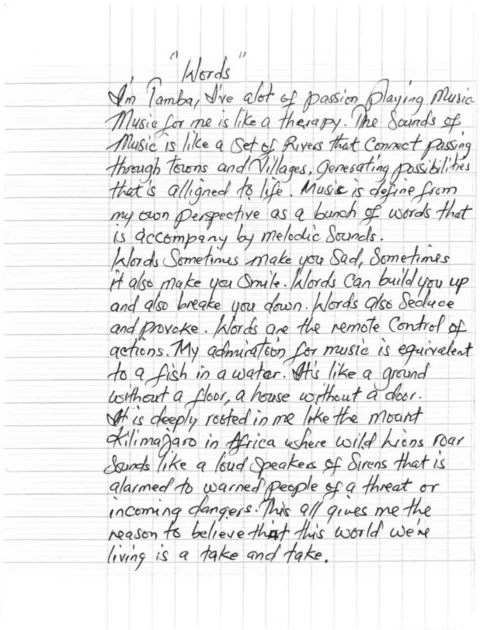 "Words"
I'm Tamba, I've alot of passion playing Music
Music for me is like a therapy. The Sounds of
Music is like a Set of Rivers that Connect passing
through towns and Villages, generating possibilities
that's alligned to life. Music is define from
my own perspective as a bunch of words that
is accompany by melodic Sounds.
Words Sometimes make you Sad, Sometimes
it also make you Smile. Words Can build you up
and also breake you down. Words also Seduce
and provoke. Words are the remote Control of
actions. My admiration for music is equivalent
to a fish in a water. It's like a ground
without a floor, a house without a door.
It is deeply rooted in me like the Mount
Kilimajaro in Africa where wild Lions roar
Sounds like a loud Speakers of Sirens that is
alarmed to warned people of a threat or
incoming dangers. This all gives me the
reason to believe that this world we're
living is a take and take.